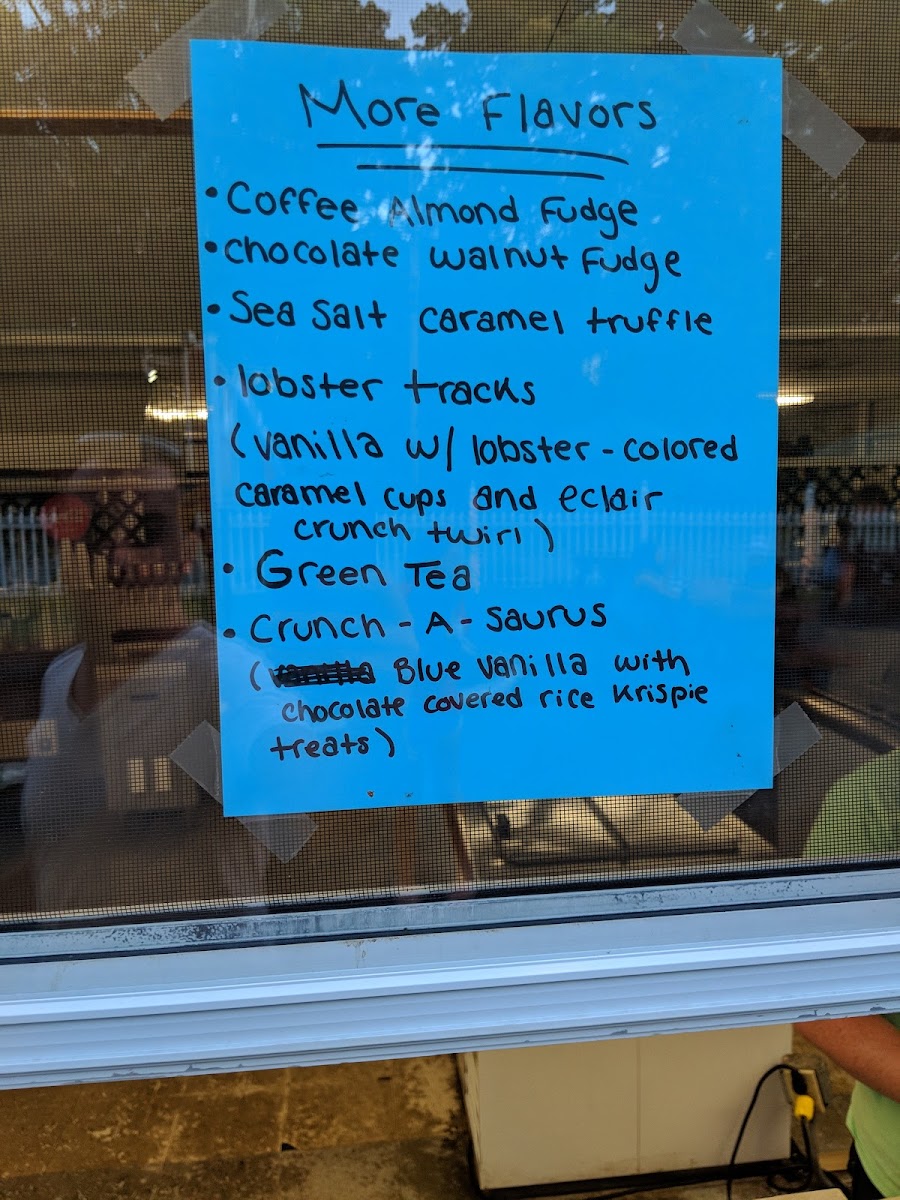 More Flavors
• Coffee Almond Fudge
• chocolate walnut Fudge
• Sea Salt caramel truffle
• lobster tracks
(vanilla w/ lobster-colored
caramel cups and eclair
crunch twirl)
• Green Tea
• Crunch-A-Saurus
( Blue vanilla with
chocolate covered rice krispie
treats)